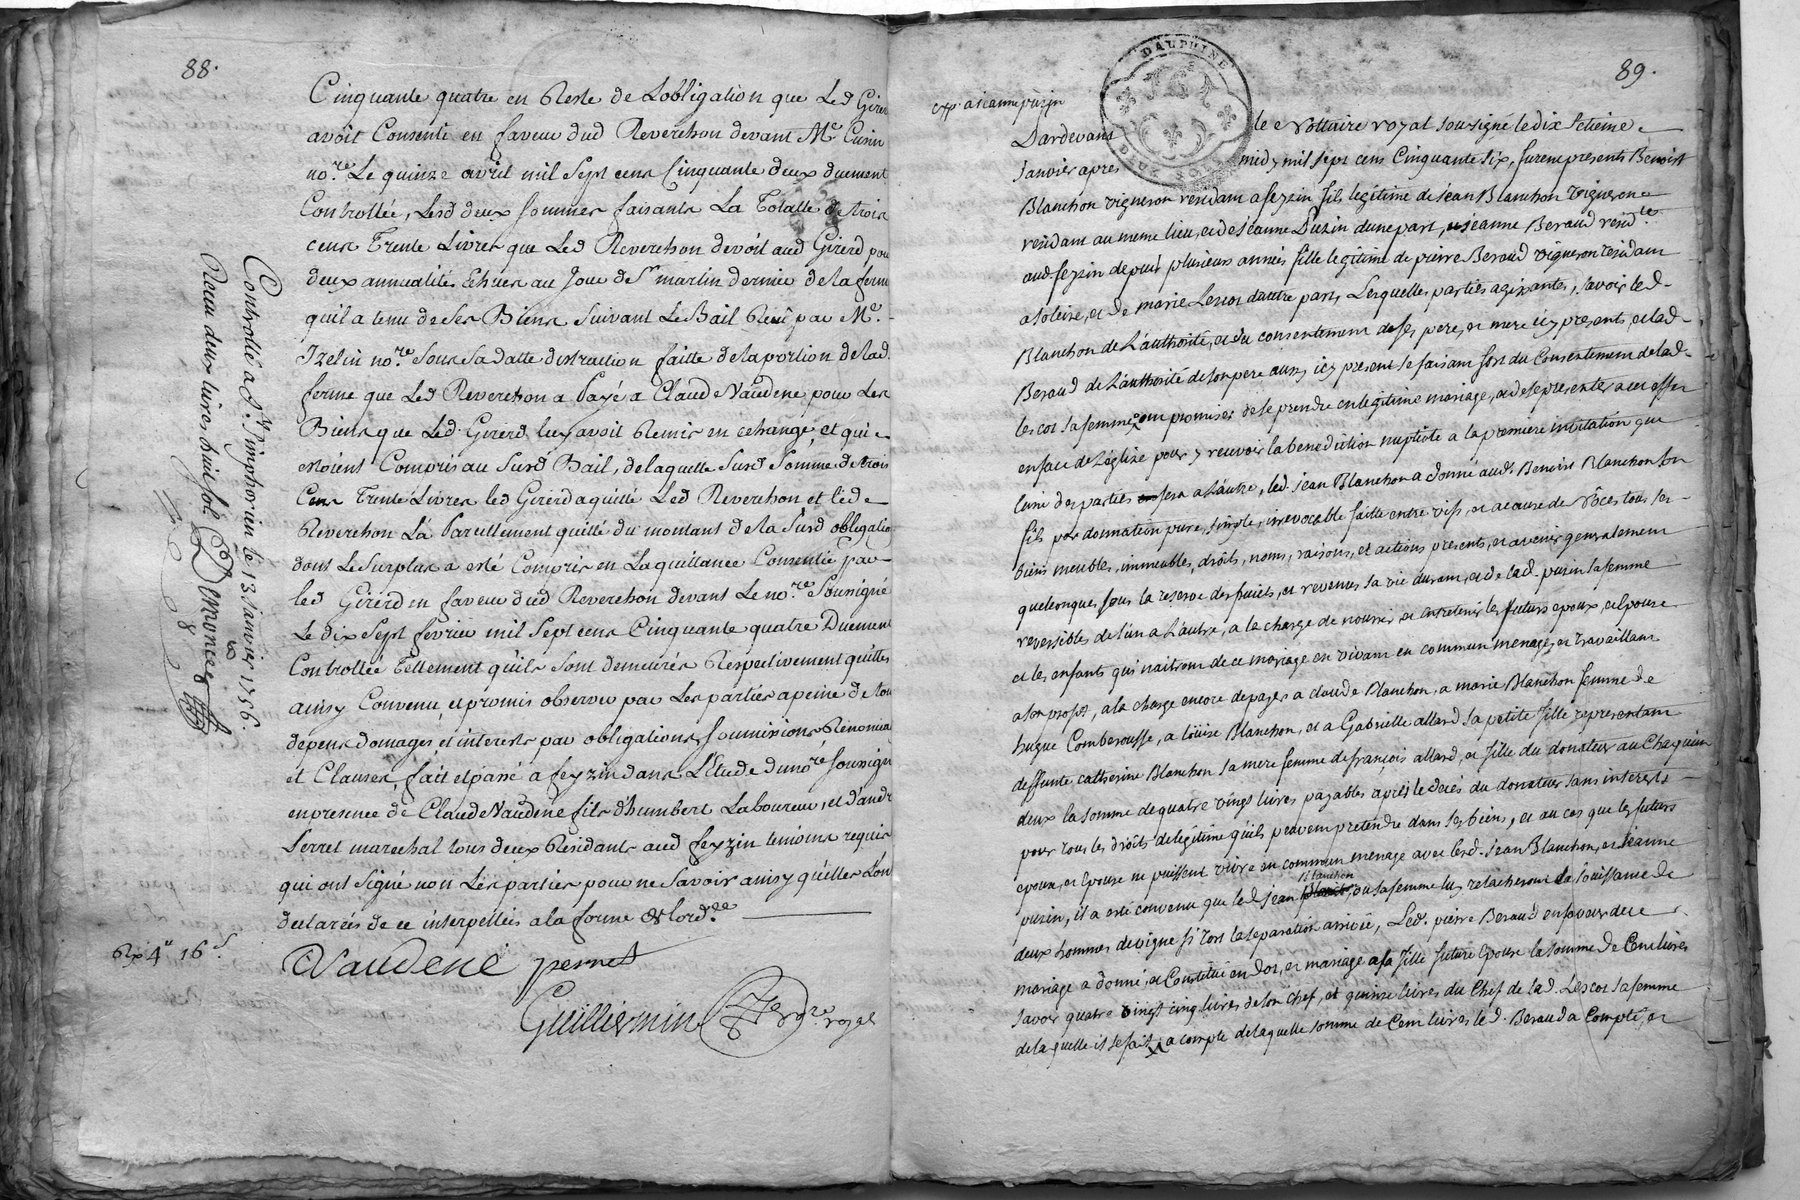 88.
Cinquante quatre en Reste de Lobligation que Led Girer
avoit Consenti en faveur dud Reverchon devant Me Cusin
no.re Le quinze avril mil Sept cens Cinquante deux duement
Controllée, Lesd deux Sommes faisants La Totalle de trois
cens Trente Livres que Led Reverchon devoit aud Girerd pour
deux annualités Echues au Jour de St martin dernier de la ferme
qu'il a tenu de Ses Biens Suivant Le Bail Reçu par Me.
Izelin no.re Sous Sa datte distraction faitte de la portion de lad
ferme que Led Reverchon a Payé a Claude Naudene pour Les
Biens que Led. Girerd luy avoit Remis en echange, et qui
etoient Compris au Surd Bail, de laquelle Surd Somme de trois
Cens Trente Livres led Girerd a quitté Led Reverchon et led
Reverchon L'a Pareillement quitté du montant de la Surd obligatio
dont Le Surplus a esté Compris en La quittance Consentie par
led Girerd en faveur dud Reverchon devant Le no.re Sousigné
Le dix Sept fevrier mil Sept cens Cinquante quatre Duement
Controllée Tellement qu'ils Sont demeurés Respectivement quittes
ainsy Convenu, et promis observer par Les parties a peine de tou
depens domages, et interests par obligations, Soumissions Renoncia
et Clauses, fait et passé a feyzin dans L'Etude du no.re Sousigné
en presence de Claude Naudene fils d'humbert Laboureur, et d'andr
Perret marechal tous deux Residants aud feyzin temoins requis
qui ont Signé non Les parties pour ne Savoir ainsy qu'elles L'on
declarées de ce interpellées a la forme de lord.ce
Rx 4u 16s
Naudené perret
Guilliermin No.re royal
Controllé a St Simphorien le 13 Janvier 1756.
Receu deux livres huit sols
89.
exp. a jeanne puzin
DAUPHINE
DEUX SOLS
Pardevant le Nottaire royal sousigné le dix Sétieme
Janvier apres midy mil sept cens Cinquante Six, furent presents Benoist
Blanchon vigneron residant a feyzin fils legitime de Jean Blanchon vigneron
residant au meme lieu, et de Jeanne Puzin d'une part, et Jeanne Beraud resid.te
aud feyzin depuis plusieurs années fille legitime de pierre Beraud vigneron residant
a soleire, et de marie Lescot d'autre part, Lesquelles parties agissantes, savoir led
Blanchon de L'authorité, et du consentement de ses pere, et mere icy presents, et lad
Beraud de L'authorité de son pere aussy icy present se faisant fort du Consentement de lad
lescot sa femme, ont promises de se prendre en legitime mariage, et de se presenter a cet effet
en face de L'église pour y recevoir la benediction nuptiale a la premiere invitation que
l'une des parties fera a L'autre, led. Jean Blanchon a donné audt Benoist Blanchon son
fils par donnation pure, simple, irrevocable faitte entre vifs, et a cause de nôces tous ses
biens meubles, immeubles, droits, noms, raisons, et actions presents, et avenir generalement
quelconques sous la reserve des fruits, et revenus sa vie durant, et de lad. puzin sa femme
reversibles de l'un a L'autre, a la charge de nourrir, et entretenir les futurs epoux, et Epouse
et les enfants qui naitront de ce mariage en vivant en commun menage, et travaillant
a son profit, a la charge encore de payer a claude Blanchon, a marie Blanchon femme de
hugue Comberousse, a Loüise Blanchon, et a Gabrielle allard sa petite fille representant
deffunte catherine Blanchon sa mere femme de françois allard, et fille du donateur au Chacquun
deux la somme de quatre vingt livres payables après le decés du donateur sans interests
pour tous les droits de legitime qu'ils peuvent pretendre dans ses biens, et au cas que les futurs
epoux, et Epouse ne puissent vivre en commun menage avec lesd. Jean Blanchon, et Jeanne
puzin, il a esté convenu que led Jean Blanchon, ou sa femme luy relacheront la Jouissance de
deux hommes de vigne si tost la separation arrivée, Led. pierre Beraud en faveur de ce
mariage a donné, et Constitué en dot, et mariage a sa fille future Epouse la somme de Cent livres
savoir quatre vingt cinq livres de son chef, et quinze livres du Chef de lad. Lescot sa femme
de laquelle il se fait fort, a compte de laquelle somme de Cent livres led. Beraud a Compté, et